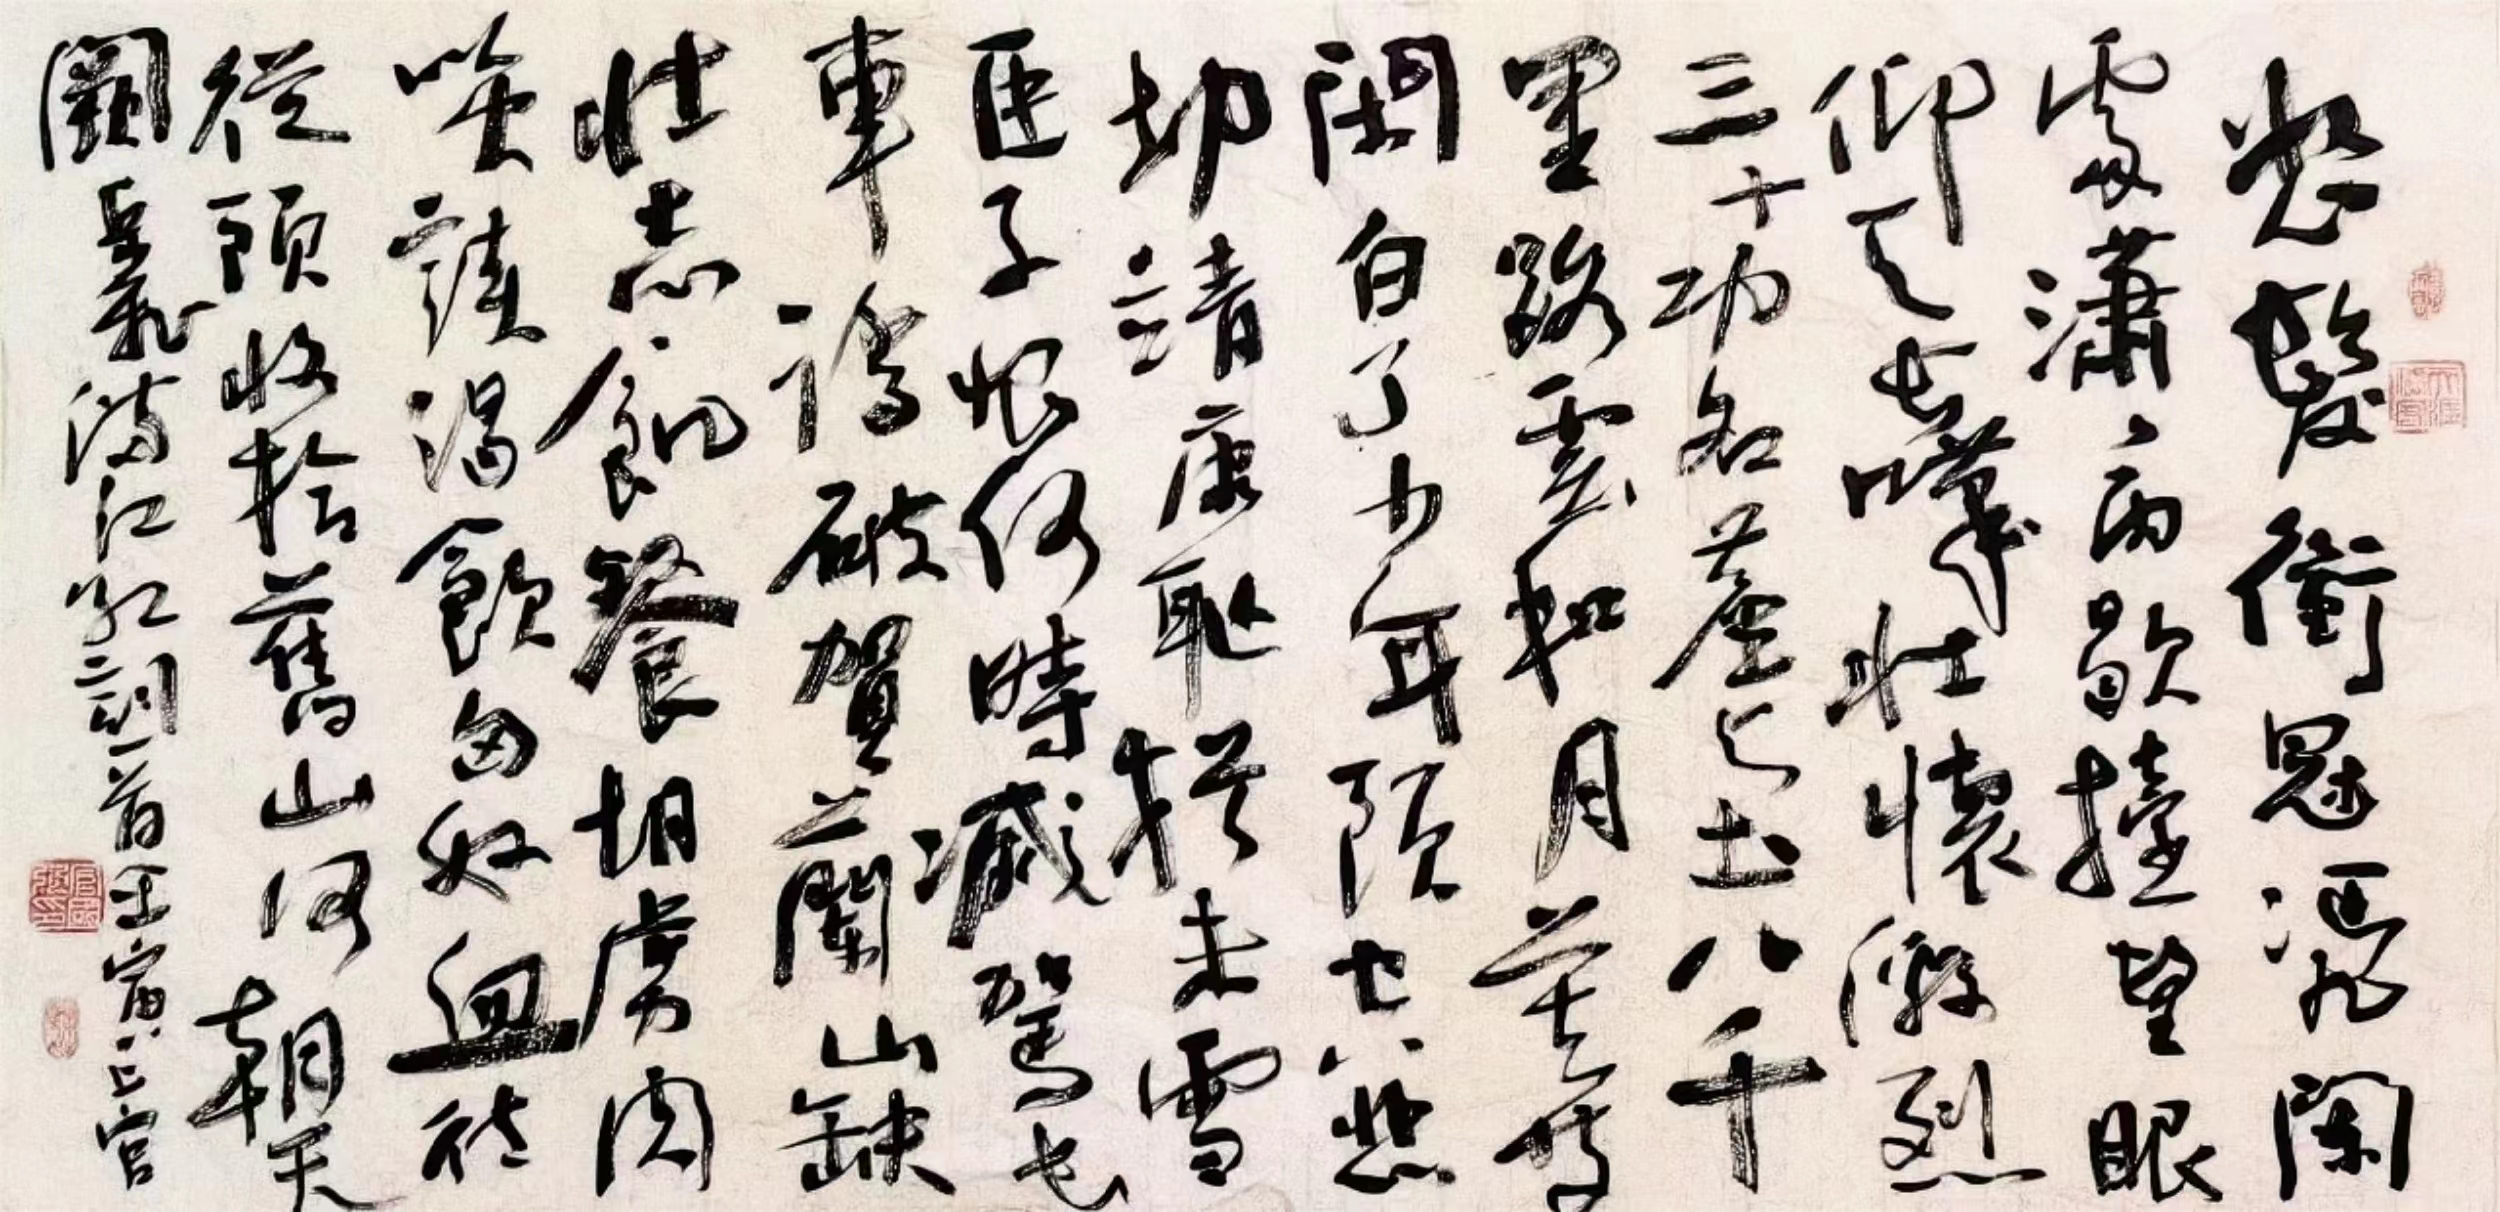 怒髮衝冠憑闌
處瀟瀟雨歇擡望眼
仰天長嘯壯懷激烈
三十功名塵与土八千
里路雲和月莫等
閑白了少年頭空悲
切靖康恥猶未雪
臣子恨何時滅駕長
車踏破賀蘭山缺
壯志飢餐胡虜肉
笑談渴飲匈奴血待
從頭收拾舊山河朝天
闕岳飛滿江紅詞一首壬寅上官